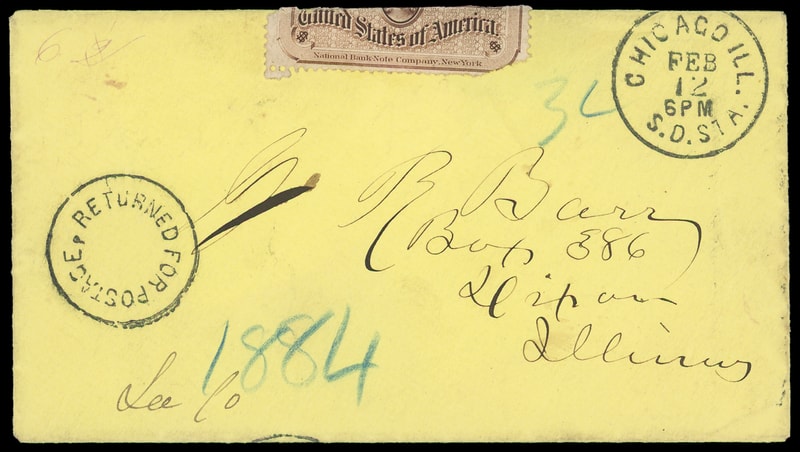 United States of America.
National Bank-Note Company, New York
CHICAGO ILL.
FEB
12
6PM
S.D. STA.
RETURNED FOR POSTAGE
R Barr
(Box 386)
Dixon
Illinois
1884
Lee Co